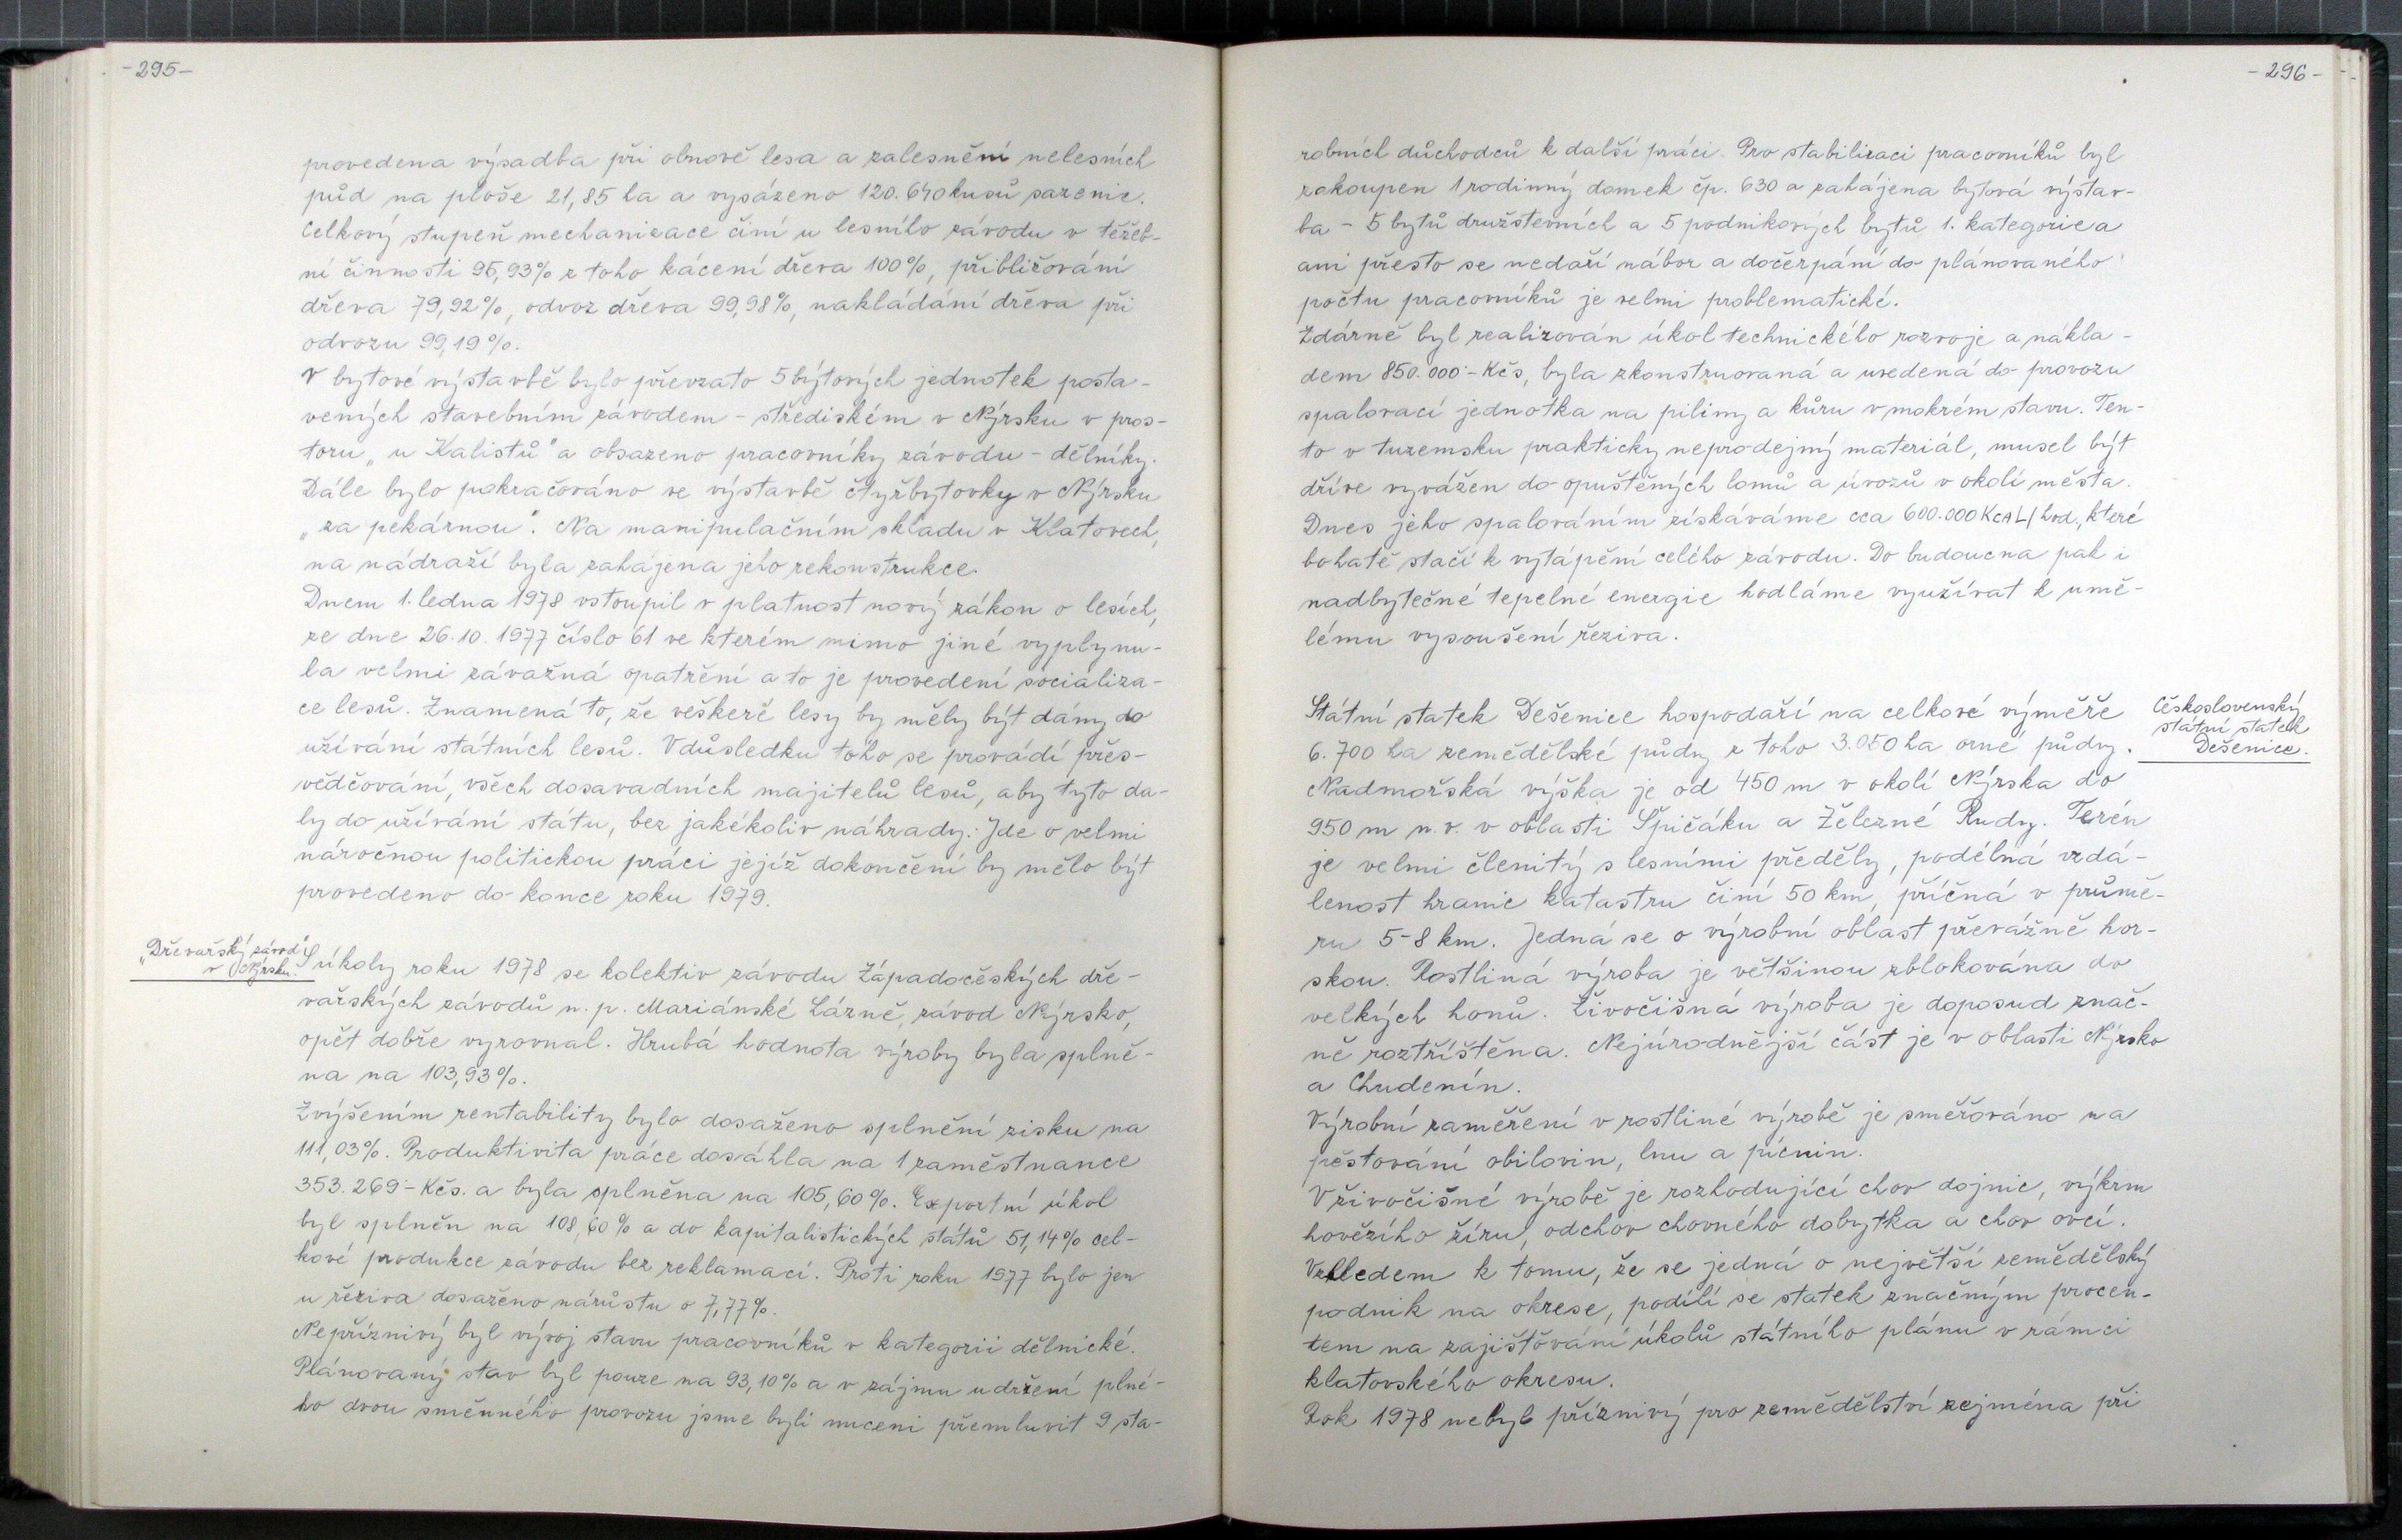 -295-
provedena výsadba při obnově lesa a zalesnění nelesních
půd na ploše 21,85 ha a vysázeno 120.640 kusů sazenic.
Celkový stupeň mechanizace činí u lesního závodu v těžeb-
ní činnosti 95,93% z toho kácení dřeva 100%, přibližování
dřeva 79,92%, odvoz dřeva 99,98%, nakládání dřeva při
odvozu 99,19%.
V bytové výstavbě bylo převzato 5 bytových jednotek posta-
vených stavebním závodem - střediskem v Nýrsku v pros-
toru „u Kalistů" a obsazeno pracovníky závodu - dělníky.
Dále bylo pokračováno ve výstavbě čtyřbytovky v Nýrsku
„za pekárnou". Na manipulačním skladu v Klatovech,
na nádraží byla zahájena jeho rekonstrukce.
Dnem 1. ledna 1978 vstoupil v platnost nový zákon o lesích,
ze dne 26.10.1977 číslo 61 ve kterém mimo jiné vyplynu-
la velmi závažná opatření a to je provedení socializa-
ce lesů. Znamená to, že veškeré lesy by měly být dány do
užívání státních lesů. V důsledku toho se provádí přes-
vědčování, všech dosavadních majitelů lesů, aby tyto da-
ly do užívání státu, bez jakékoliv náhrady. Jde o velmi
náročnou politickou práci jejíž dokončení by mělo být
provedeno do konce roku 1979.
„Dřevařský závod"
v Nýrsku.
S úkoly roku 1978 se kolektiv závodu Západočeských dře-
vařských závodů n. p. Mariánské Lázně, závod Nýrsko,
opět dobře vyrovnal. Hrubá hodnota výroby byla splně-
na na 103,93%.
Zvýšením rentability bylo dosaženo splnění zisku na
111,03%. Produktivita práce dosáhla na 1 zaměstnance
353.269-Kčs. a byla splněna na 105,60%. Exportní úkol
byl splněn na 108,60% a do kapitalistických států 51,14% cel-
kové produkce závodu bez reklamací. Proti roku 1977 bylo jen
u řeziva dosaženo nárůstu o 7,77%.
Nepříznivý byl vývoj stavu pracovníků v kategorii dělnické.
Plánovaný stav byl pouze na 93,10% a v zájmu udržení plné-
ho dvou směnného provozu jsme byli nuceni přemluvit 9 sta-
-296-
robních důchodců k další práci. Pro stabilizaci pracovníků byl
zakoupen 1 rodinný domek čp. 630 a zahájena bytová výstav-
ba - 5 bytů družstevních a 5 podnikových bytů 1. kategorie a
ani přesto se nedaří nábor a dočerpání do plánovaného
počtu pracovníků je velmi problematické.
Zdárně byl realizován úkol technického rozvoje a nákla-
dem 850.000-Kčs, byla zkonstruovaná a uvedená do provozu
spalovací jednotka na piliny a kůru v mokrém stavu. Ten-
to v tuzemsku prakticky neprodejný materiál, musel být
dříve vyvážen do opuštěných lomů a úvozů v okolí města.
Dnes jeho spalováním získáváme cca 600.000 KCAL/hod., které
bohatě stačí k vytápění celého závodu. Do budoucna pak i
nadbytečné tepelné energie hodláme využívat k umě-
lému vysoušení řeziva.
Československý
státní statek
Dešenice.
Státní statek Dešenice hospodaří na celkové výměře
6.700 ha zemědělské půdy z toho 3.050 ha orné půdy.
Nadmořská výška je od 450 m v okolí Nýrska do
950 m n.v. v oblasti Špičáku a Železné Rudy. Terén
je velmi členitý s lesními předěly, podélná vzdá-
lenost hranic katastru činí 50 km, příčná v průmě-
ru 5-8 km. Jedná se o výrobní oblast převážně hor-
skou. Rostliná výroba je většinou zblokována do
velkých honů. Živočišná výroba je doposud znač-
ně roztříštěna. Nejúrodnější část je v oblasti Nýrsko
a Chudenín.
Výrobní zaměření v rostliné výrobě je směřováno na
pěstování obilovin, lnu a pícnin.
V živočišné výrobě je rozhodující chov dojnic, výkrm
hovězího žíru, odchov chovného dobytka a chov ovcí.
Vzhledem k tomu, že se jedná o největší zemědělský
podnik na okrese, podílí se statek značným procen-
tem na zajišťování úkolů státního plánu v rámci
klatovského okresu.
Rok 1978 nebyl příznivý pro zemědělství zejména při